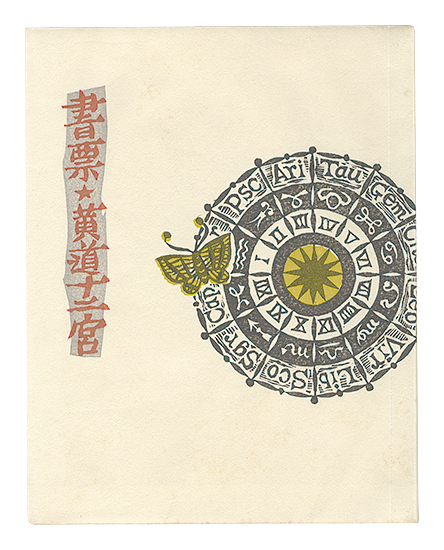 書票★黄道十二宮
Psc
Ari
Tau
Gem
Leo
Vir
Lib
Sco
Sgr
Cap
I
II
III
IV
V
VI
VII
VIII
IX
X
XI
XII